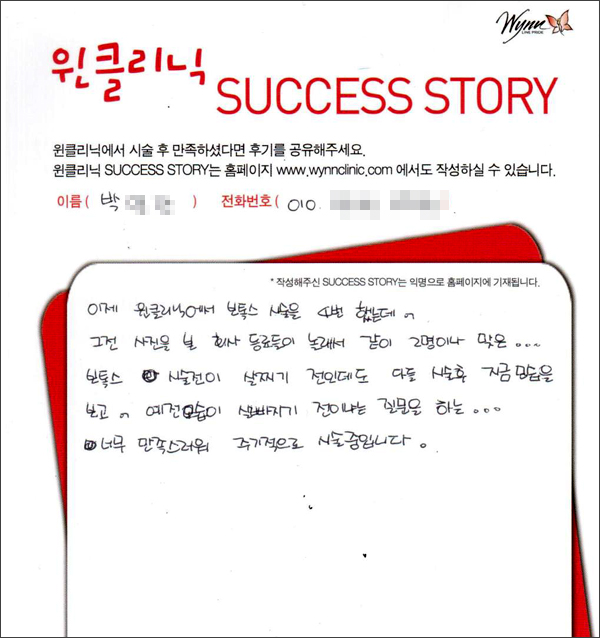 Wynn
LINE PRIDE
윈클리닉
SUCCESS STORY
윈클리닉에서 시술 후 만족하셨다면 후기를 공유해주세요.
윈클리닉 SUCCESS STORY는 홈페이지 www.wynnclinic.com 에서도 작성하실 수 있습니다.
이름 ( 박 ) 전화번호 ( 010. )
* 작성해주신 SUCCESS STORY는 익명으로 홈페이지에 기재됩니다.
이제 윈클리닉에서 보톡스 시술을 4번 했는데.
그전 사진을 본 회사 동료들이 놀래서 같이 2명이나 맞은...
보톡스 시술전이 살찌기 전인데도 다들 시술후 지금 모습을
보고. 예전모습이 살빠지기 전이냐는 질문을 하는...
너무 만족스러워 주기적으로 시술중입니다.